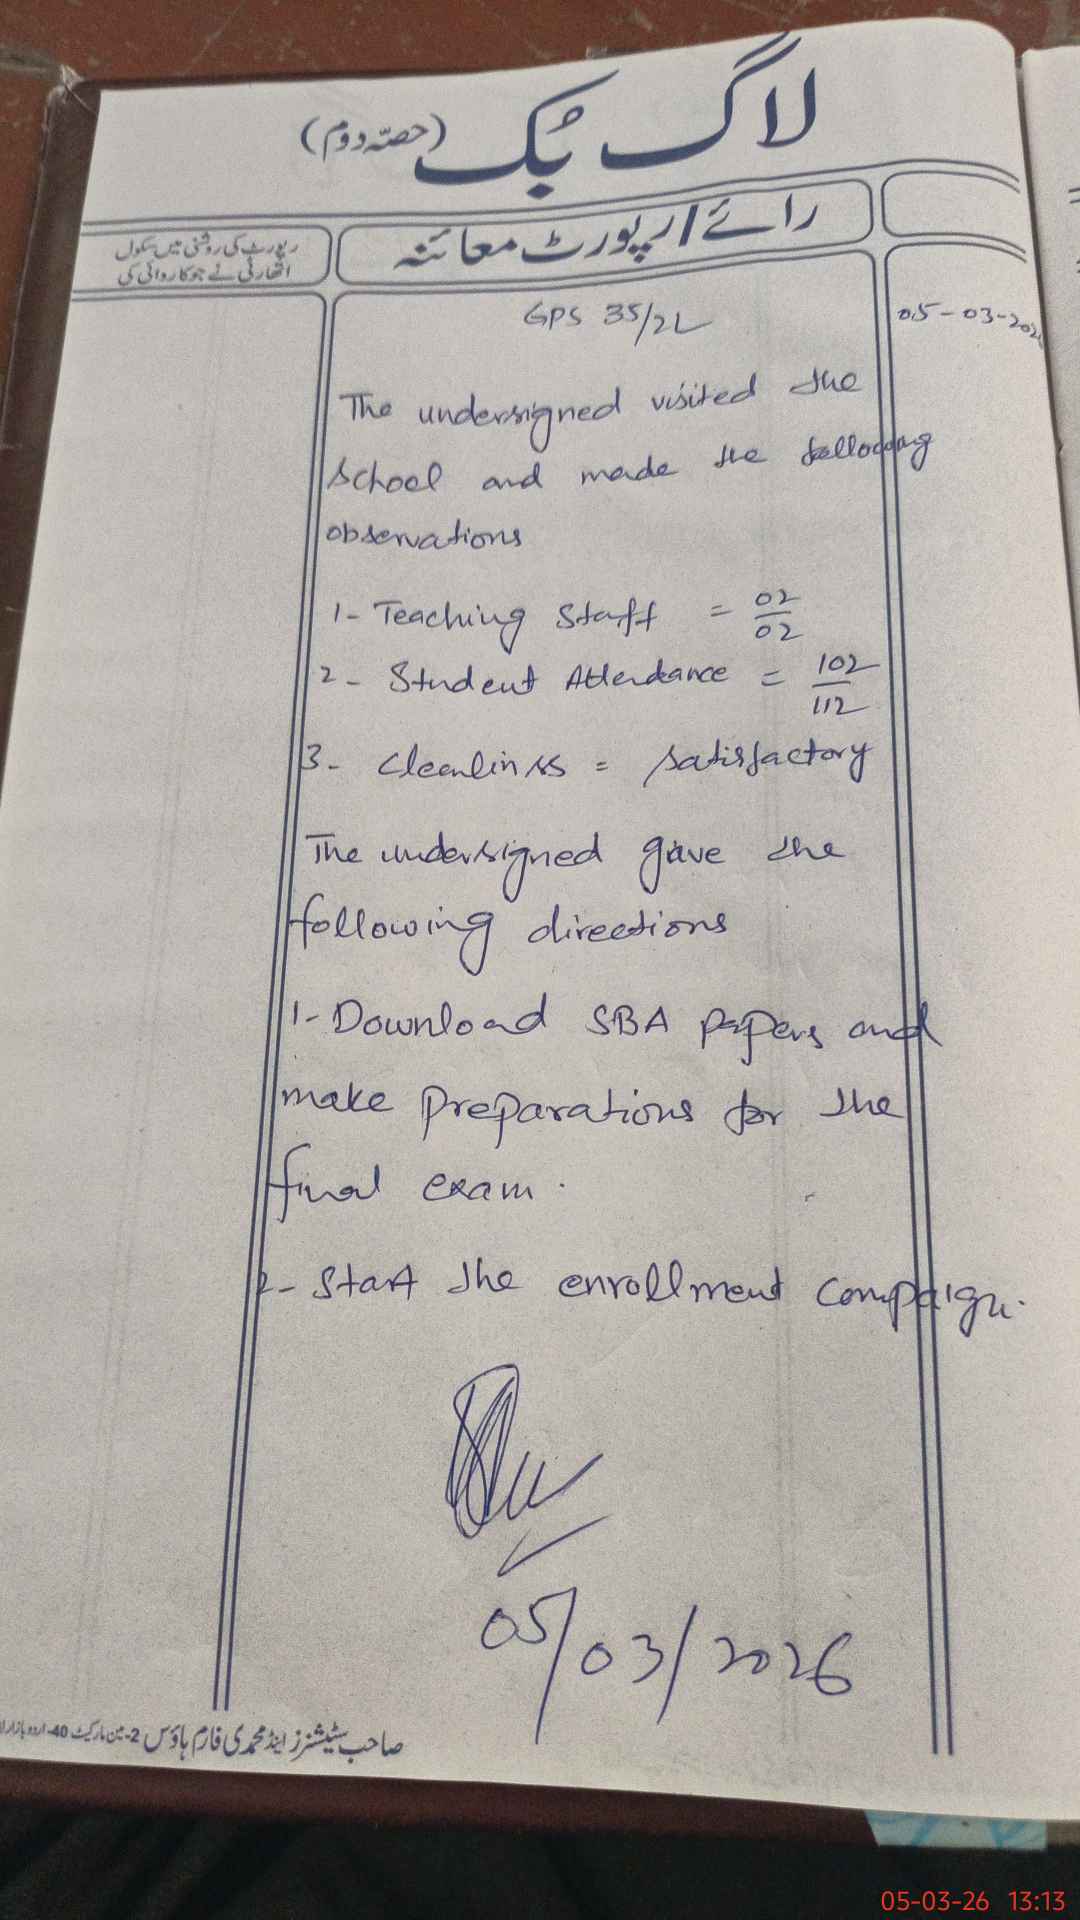 لاگ بُک (حصّہ دوم)
رائے / رپورٹ معائنہ
رپورٹ کی روشنی میں سکول
اتھارٹی نے جو کاروائی کی
GPS 35/2L
05-03-202
The undersigned visited the
school and made the following
observations
1- Teaching Staff = 02/02
2- Student Attendance = 102/112
3- Cleanlinss = satisfactory
The undersigned gave the
following directions
1- Download SBA papers and
make preparations for the
final exam.
2- Start the enrollment compaign.
05/03/2026
صاحب سٹیشنرز اینڈ محمدی فارم ہاؤس 2-مین مارکیٹ 40-اردو بازار
05-03-26 13:13